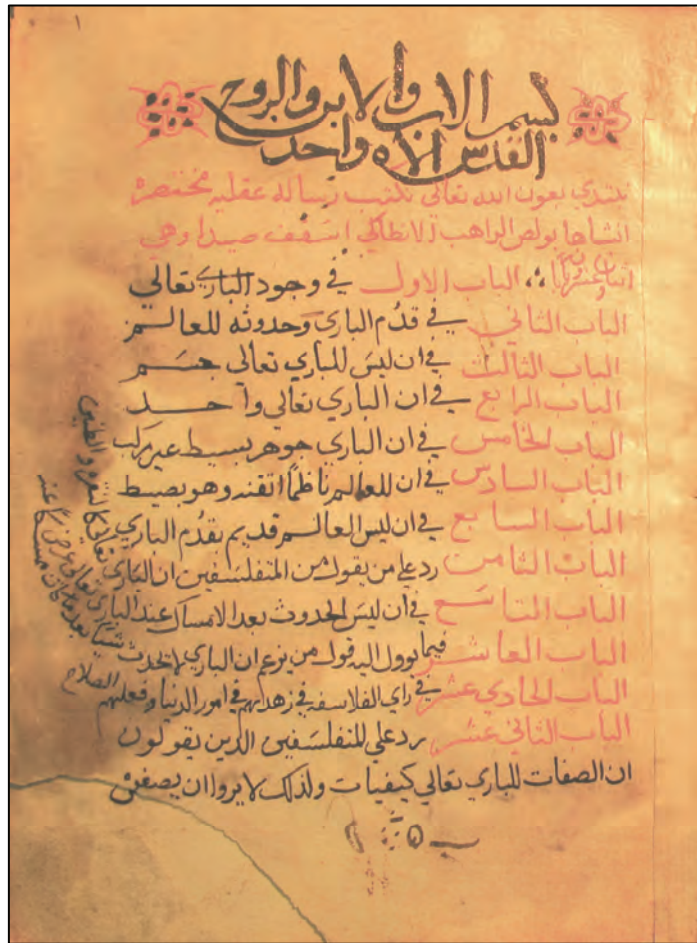 ١
بسم الاب والابن والروح
القدس الاه واحد
نبتدي بعون الله تعالى نكتب رساله عقليه مختصره
انشاها بولص الراهب الانطاكي اسقف صيدا وهي
الباب الاول في وجود الباري تعالي
الباب الثاني في قدم الباري وحدوثه للعالم
الباب الثالث في ان ليس للباري تعالى جسم
الباب الرابع في ان الباري تعالي واحد
الباب الخامس في ان الباري جوهر بسيط غير مركب
الباب السادس في ان للعالم ناظماً اتقنه وهو بصيط
الباب السابع في ان ليس العالم قديم بقدم الباري
الباب الثامن رد علي من يقول من المتفلسفين ان الباري تعالي
الباب التاسع في ان ليس الحدوث بعد الامساك عند الباري تعالي
الباب العاشر فيما يوول اليه قول من يزعم ان الباري لا يحدث شيا بعد
الباب الحادي عشر في راي الفلاسفه في زهدهم في امور الدنيا وفعلهم الصلاح
الباب الثاني عشر رد علي المتفلسفين الذين يقولون
ان الصفات للباري تعالي كيفيات ولذلك لا يروا ان يصفن